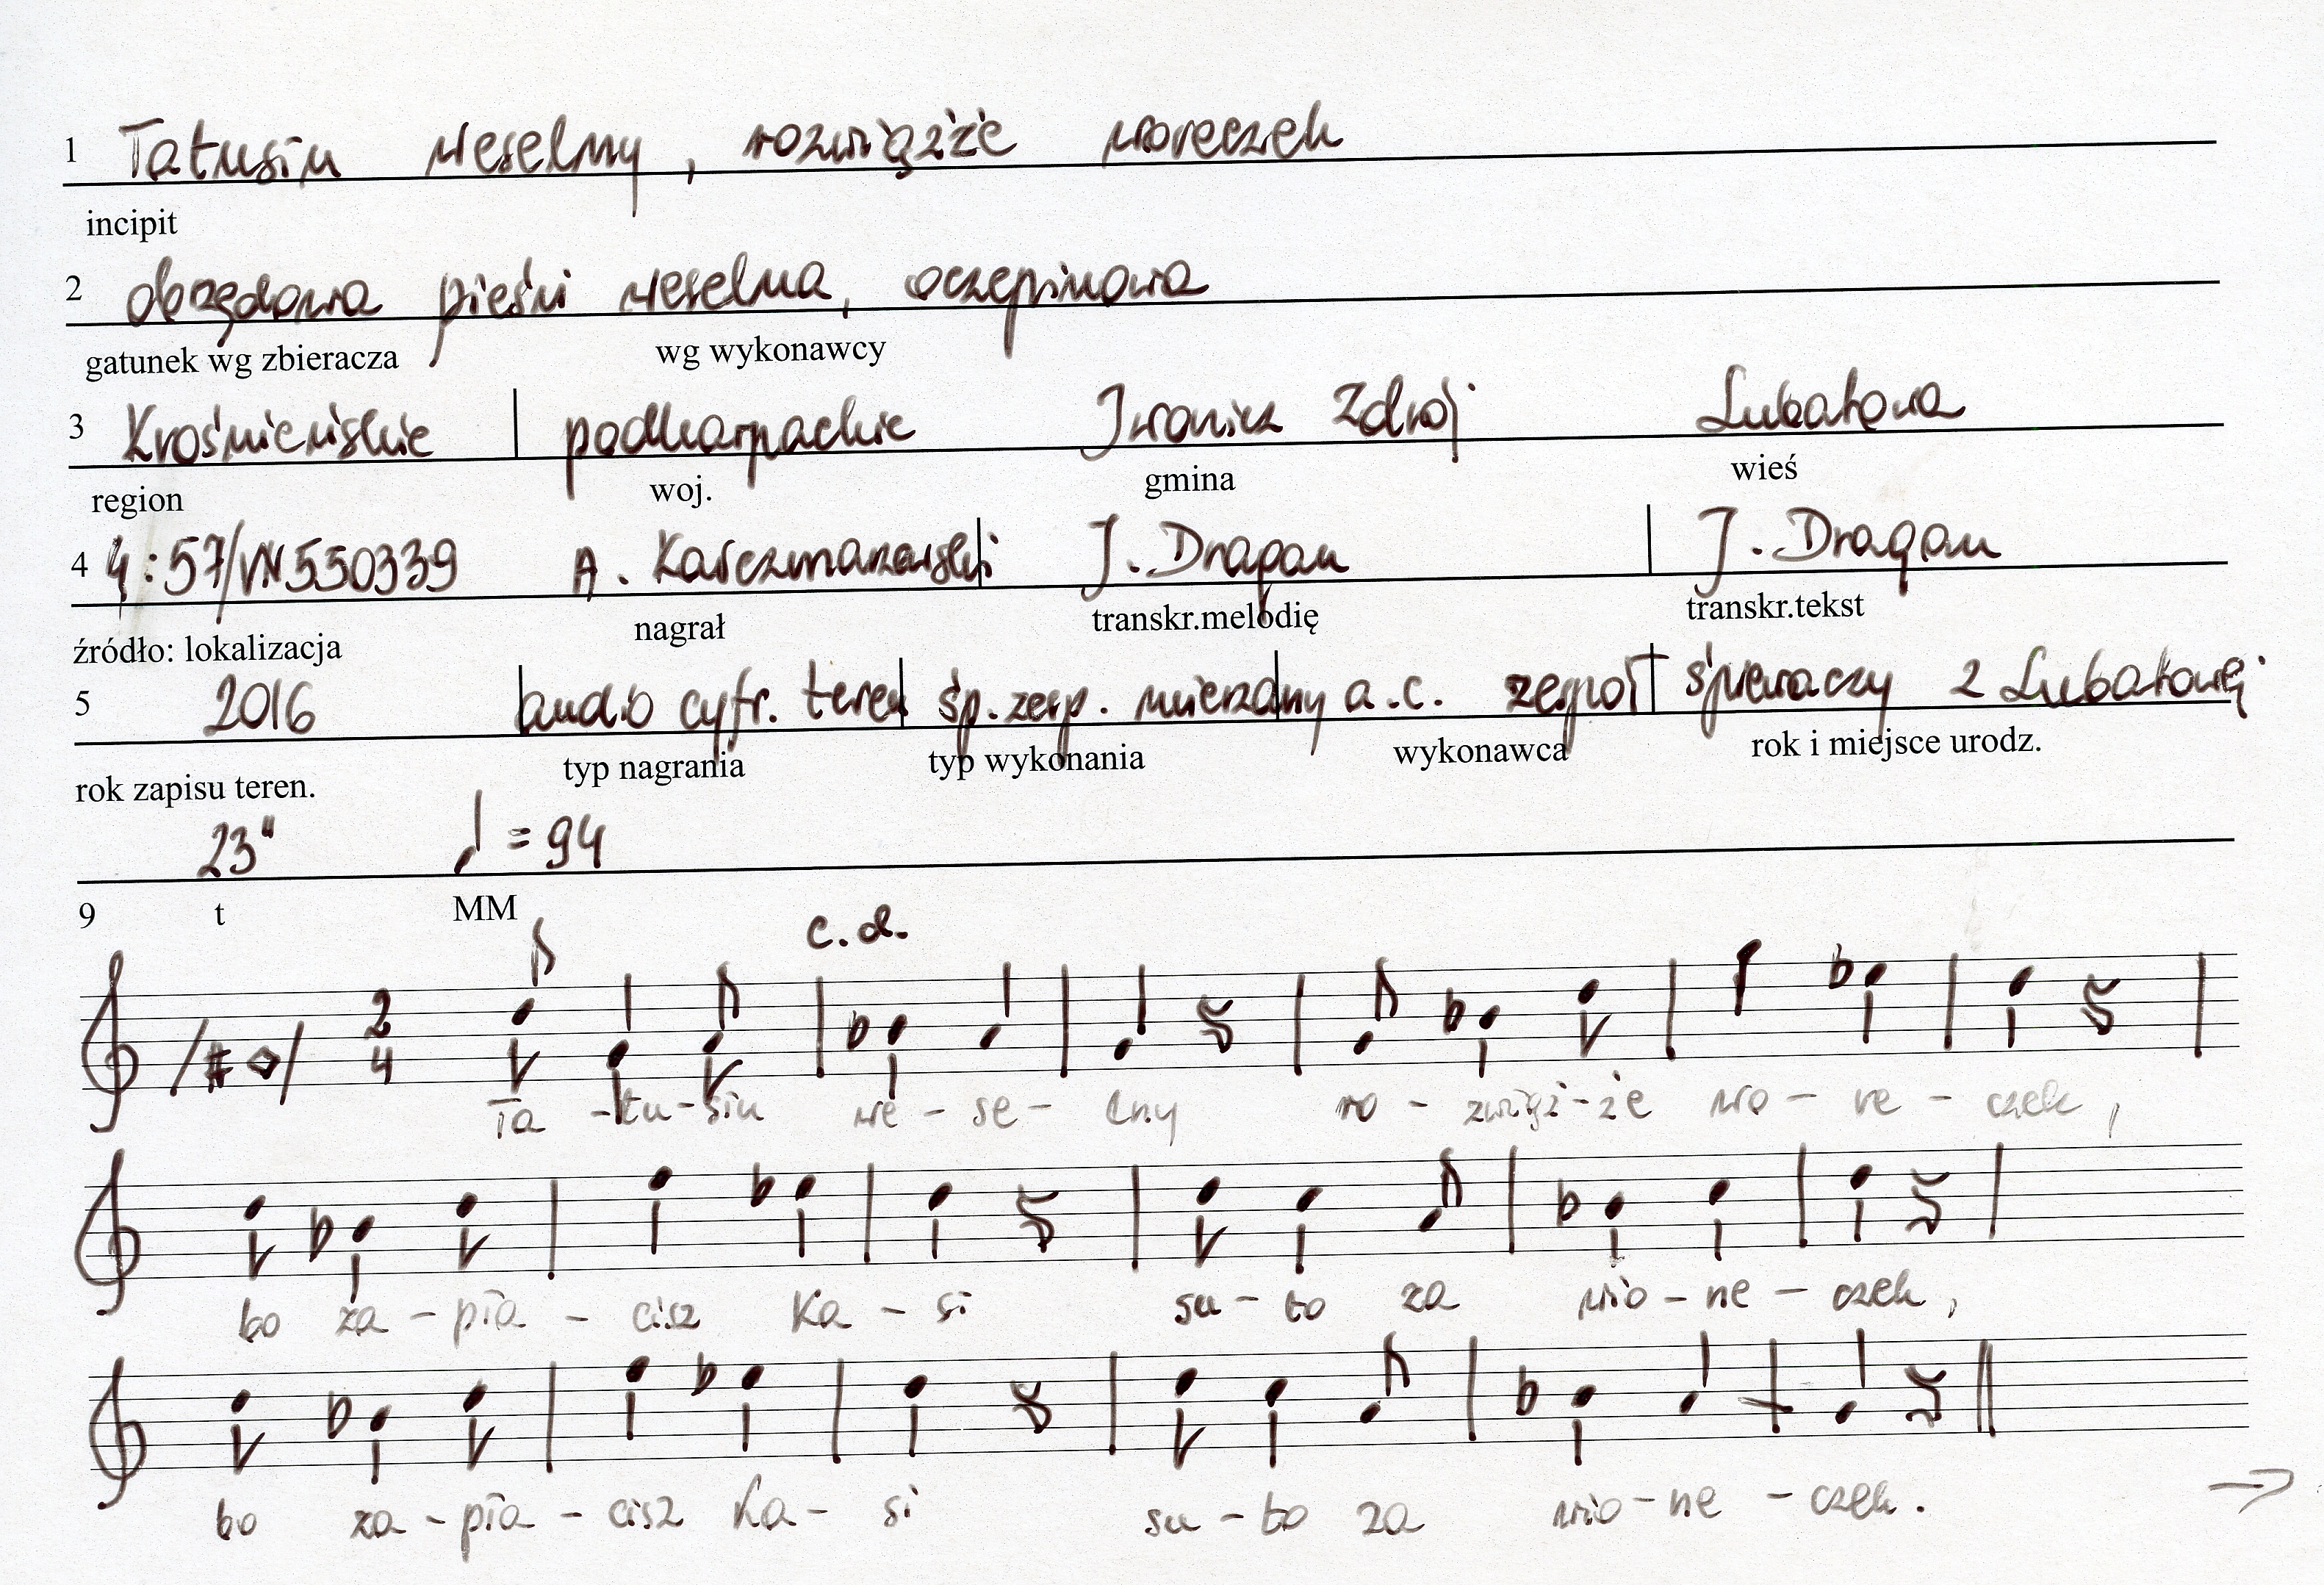 1 Tatusiu weselny, rozwiązże woreczek
incipit
2 obrzędowa pieśń weselna, oczepinowa
gatunek wg zbieracza wg wykonawcy
3 Krośnieńskie podkarpackie Iwonicz Zdrój Lubatowa
region woj. gmina wieś
4 4:57/VN550339 A. Karczmarzewski J. Dragan J. Dragan
źródło: lokalizacja nagrał transkr.melodię transkr.tekst
5 2016 audio cyfr. teren śp. zesp. mieszany a.c. zespół śpiewaczy z Lubatowej
rok zapisu teren. typ nagrania typ wykonania wykonawca rok i miejsce urodz.
23" ♩ = 94
9 t MM
c.d.
2
4
Ta-tu-siu we-se-lny ro-zwiąż-że wo-re-czek,
bo za-pła-cisz Ka-si su-to za wio-ne-czek,
bo za-pła-cisz Ka-si su-to za wio-ne-czek. →